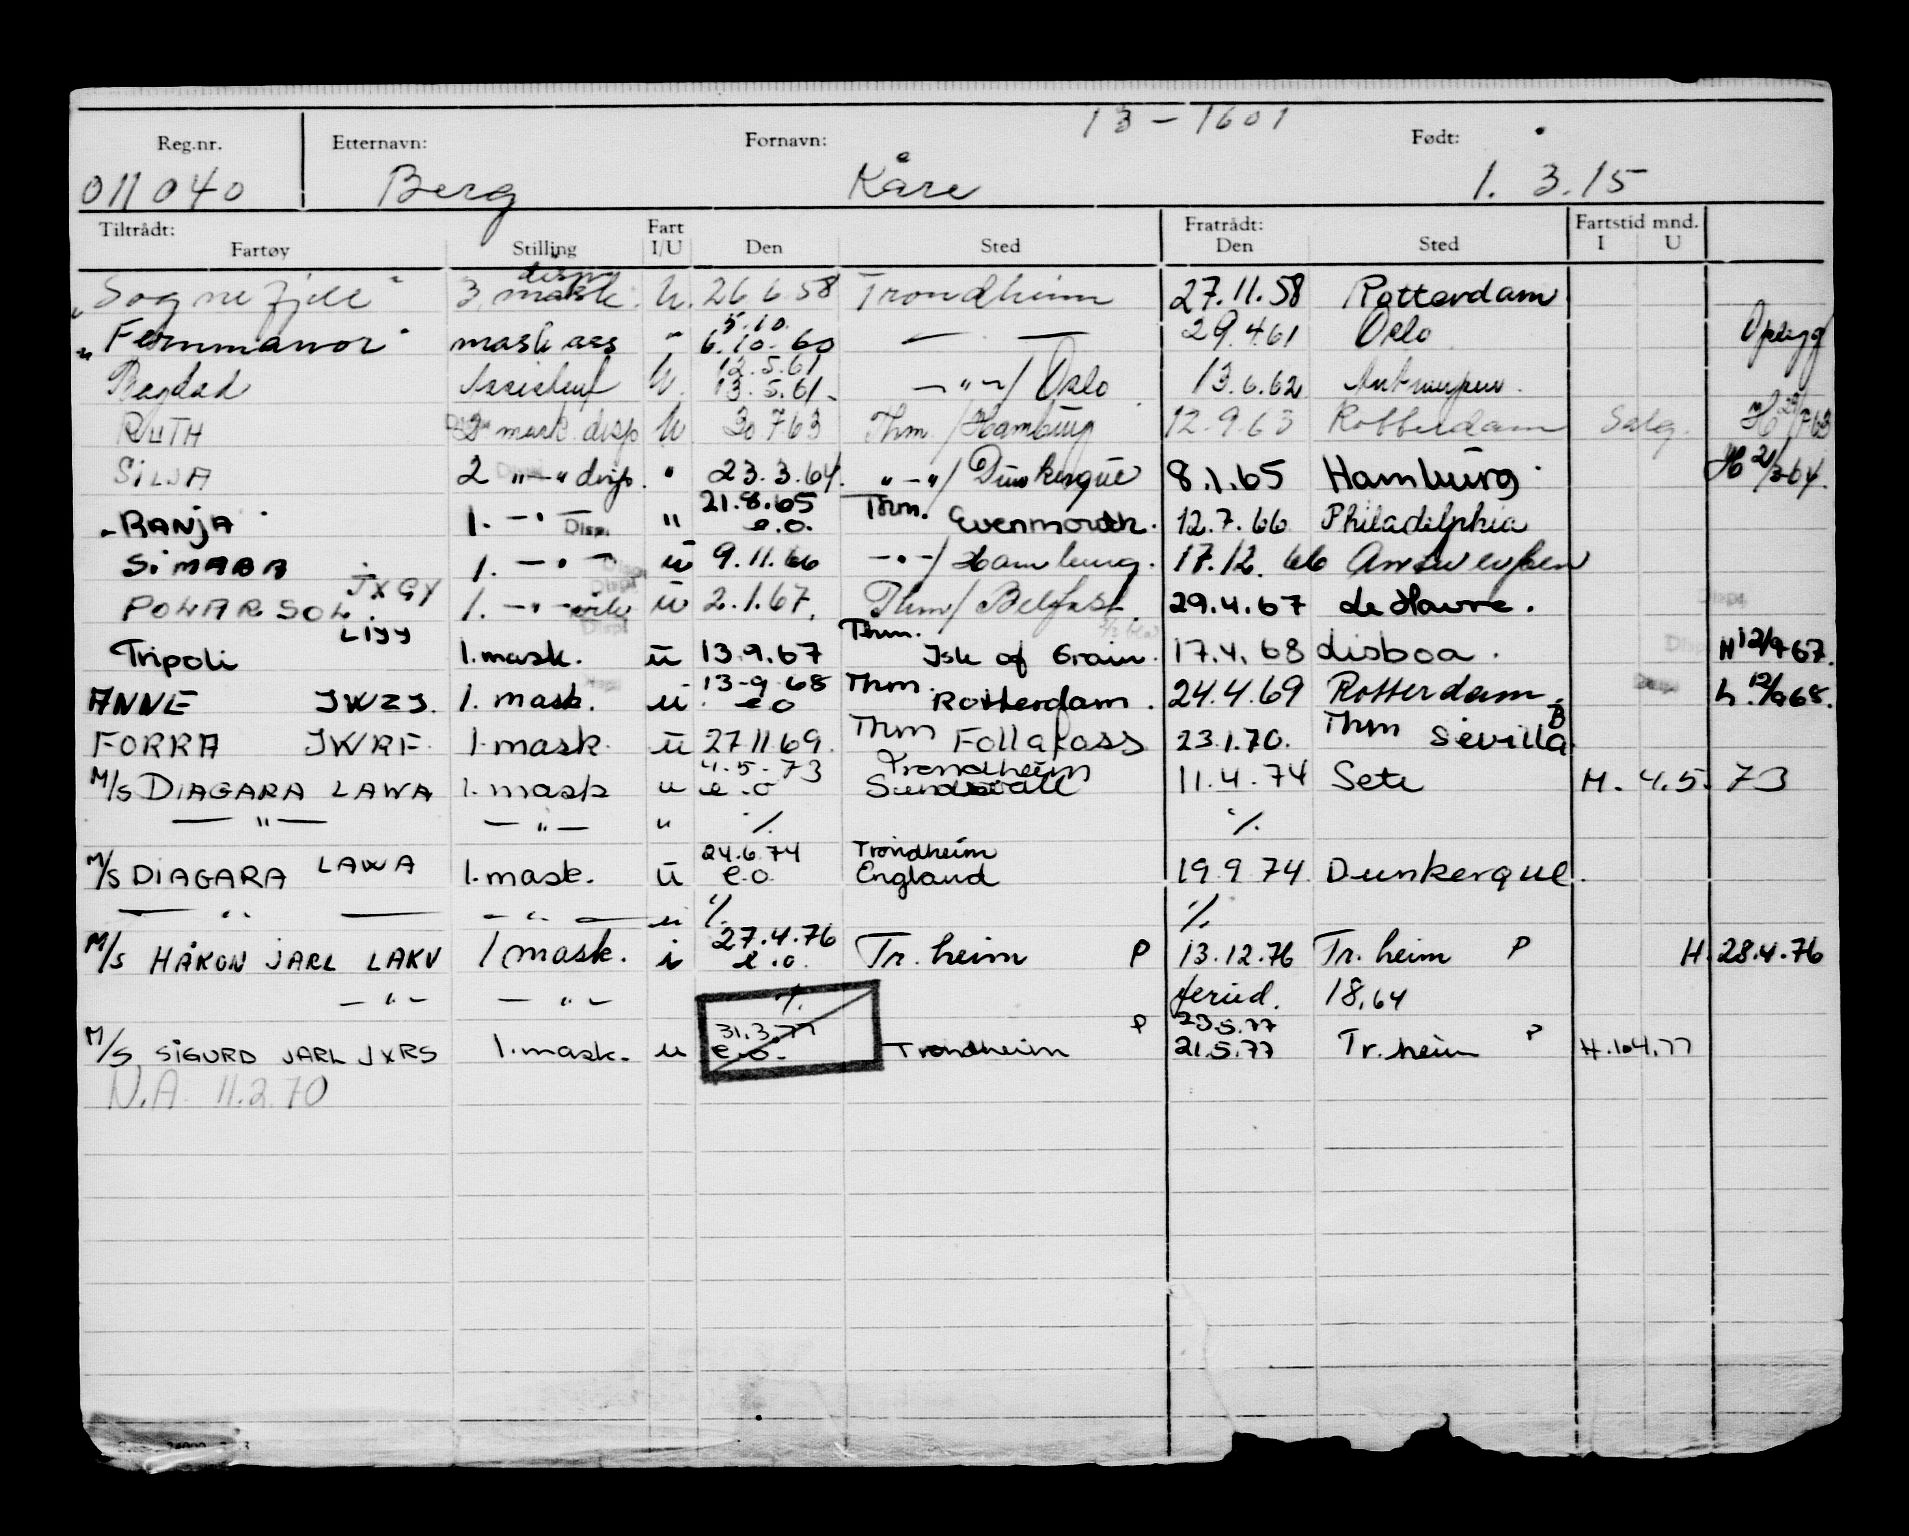 13-1601
Reg.nr. Etternavn: Fornavn: Født:
011040 Berg Kåre 1. 3.15
Tiltrådt: Fart Fratrådt: Fartstid mnd.
Fartøy Stilling I/U Den Sted Den Sted I U
disp
"Sognefjell" 3. mask. U. 26.6.58 Trondheim 27.11.58 Rotterdam
5.10.
"Fernmanor" mask ass " 6.10.60 — — 29.4.61 Oslo Opplegg
12.5.61
Bagdad Assistent U. 13.5.61. —"—/ Oslo 13.6.62 Antwerpen.
RUTH 2 mask. disp U 30 7 63 Thm./Hamburg 12.9.63 Rotterdam Salg.
SILJA 2 "—" disp. " 23.3.64. "—"/ Dunkerque 8.1.65 Hamburg. H 21/3-64.
21.8.65 Thm.
"RANJA" 1. —"— Disp. " e.o. Evenmouth. 12.7.66 Philadelphia
SIMARA 1. —"— ü 9.11.66 —"—/ Hamburg. 17.12.66 Antwerpen
JXGY
POLARSOL 1. —"— ü 2.1.67. Thm/ Belfast 29.4.67 Le Havre.
LIYY Thm.
Tripoli 1. mask. ü 13.9.67 Isle of Grain. 17.4.68 Lisboa. H 12/9 67.
13-9 68 Thm.
ANNE JWZJ. 1. mask. ü. e o Rotterdam. 24.4.69 Rotterdam. 12/9 68.
FORRA JWRF. 1. mask. ü 27 11 69. Thm Follafoss 23.1.70. Thm Sevilla B
4.5.73 Trondheim
M/S DIAGARA LAWA 1. mask u e.o Sundsvall 11.4.74 Sete H. 4.5. 73
—"— —"— " ٪ ٪
24.6.74 Trondheim
M/S DIAGARA LAWA 1. mask. ü e.o. England 19.9 74. Dunkerque.
— " — — " — u ٪ ٪
27.4.76
M/S HÅKON JARL LAKV 1 mask. i e.o. Tr. heim P 13.12.76 Tr. heim P H. 28.4.76
—"— —"— ٪ feried. 18,64
31.3.77 P 23.5.77
M/S SIGURD JARL JXRS 1. mask. u e.o. Trondheim 21.5.77 Tr. heim P H. 1o4.77
N.A. 11.2.70